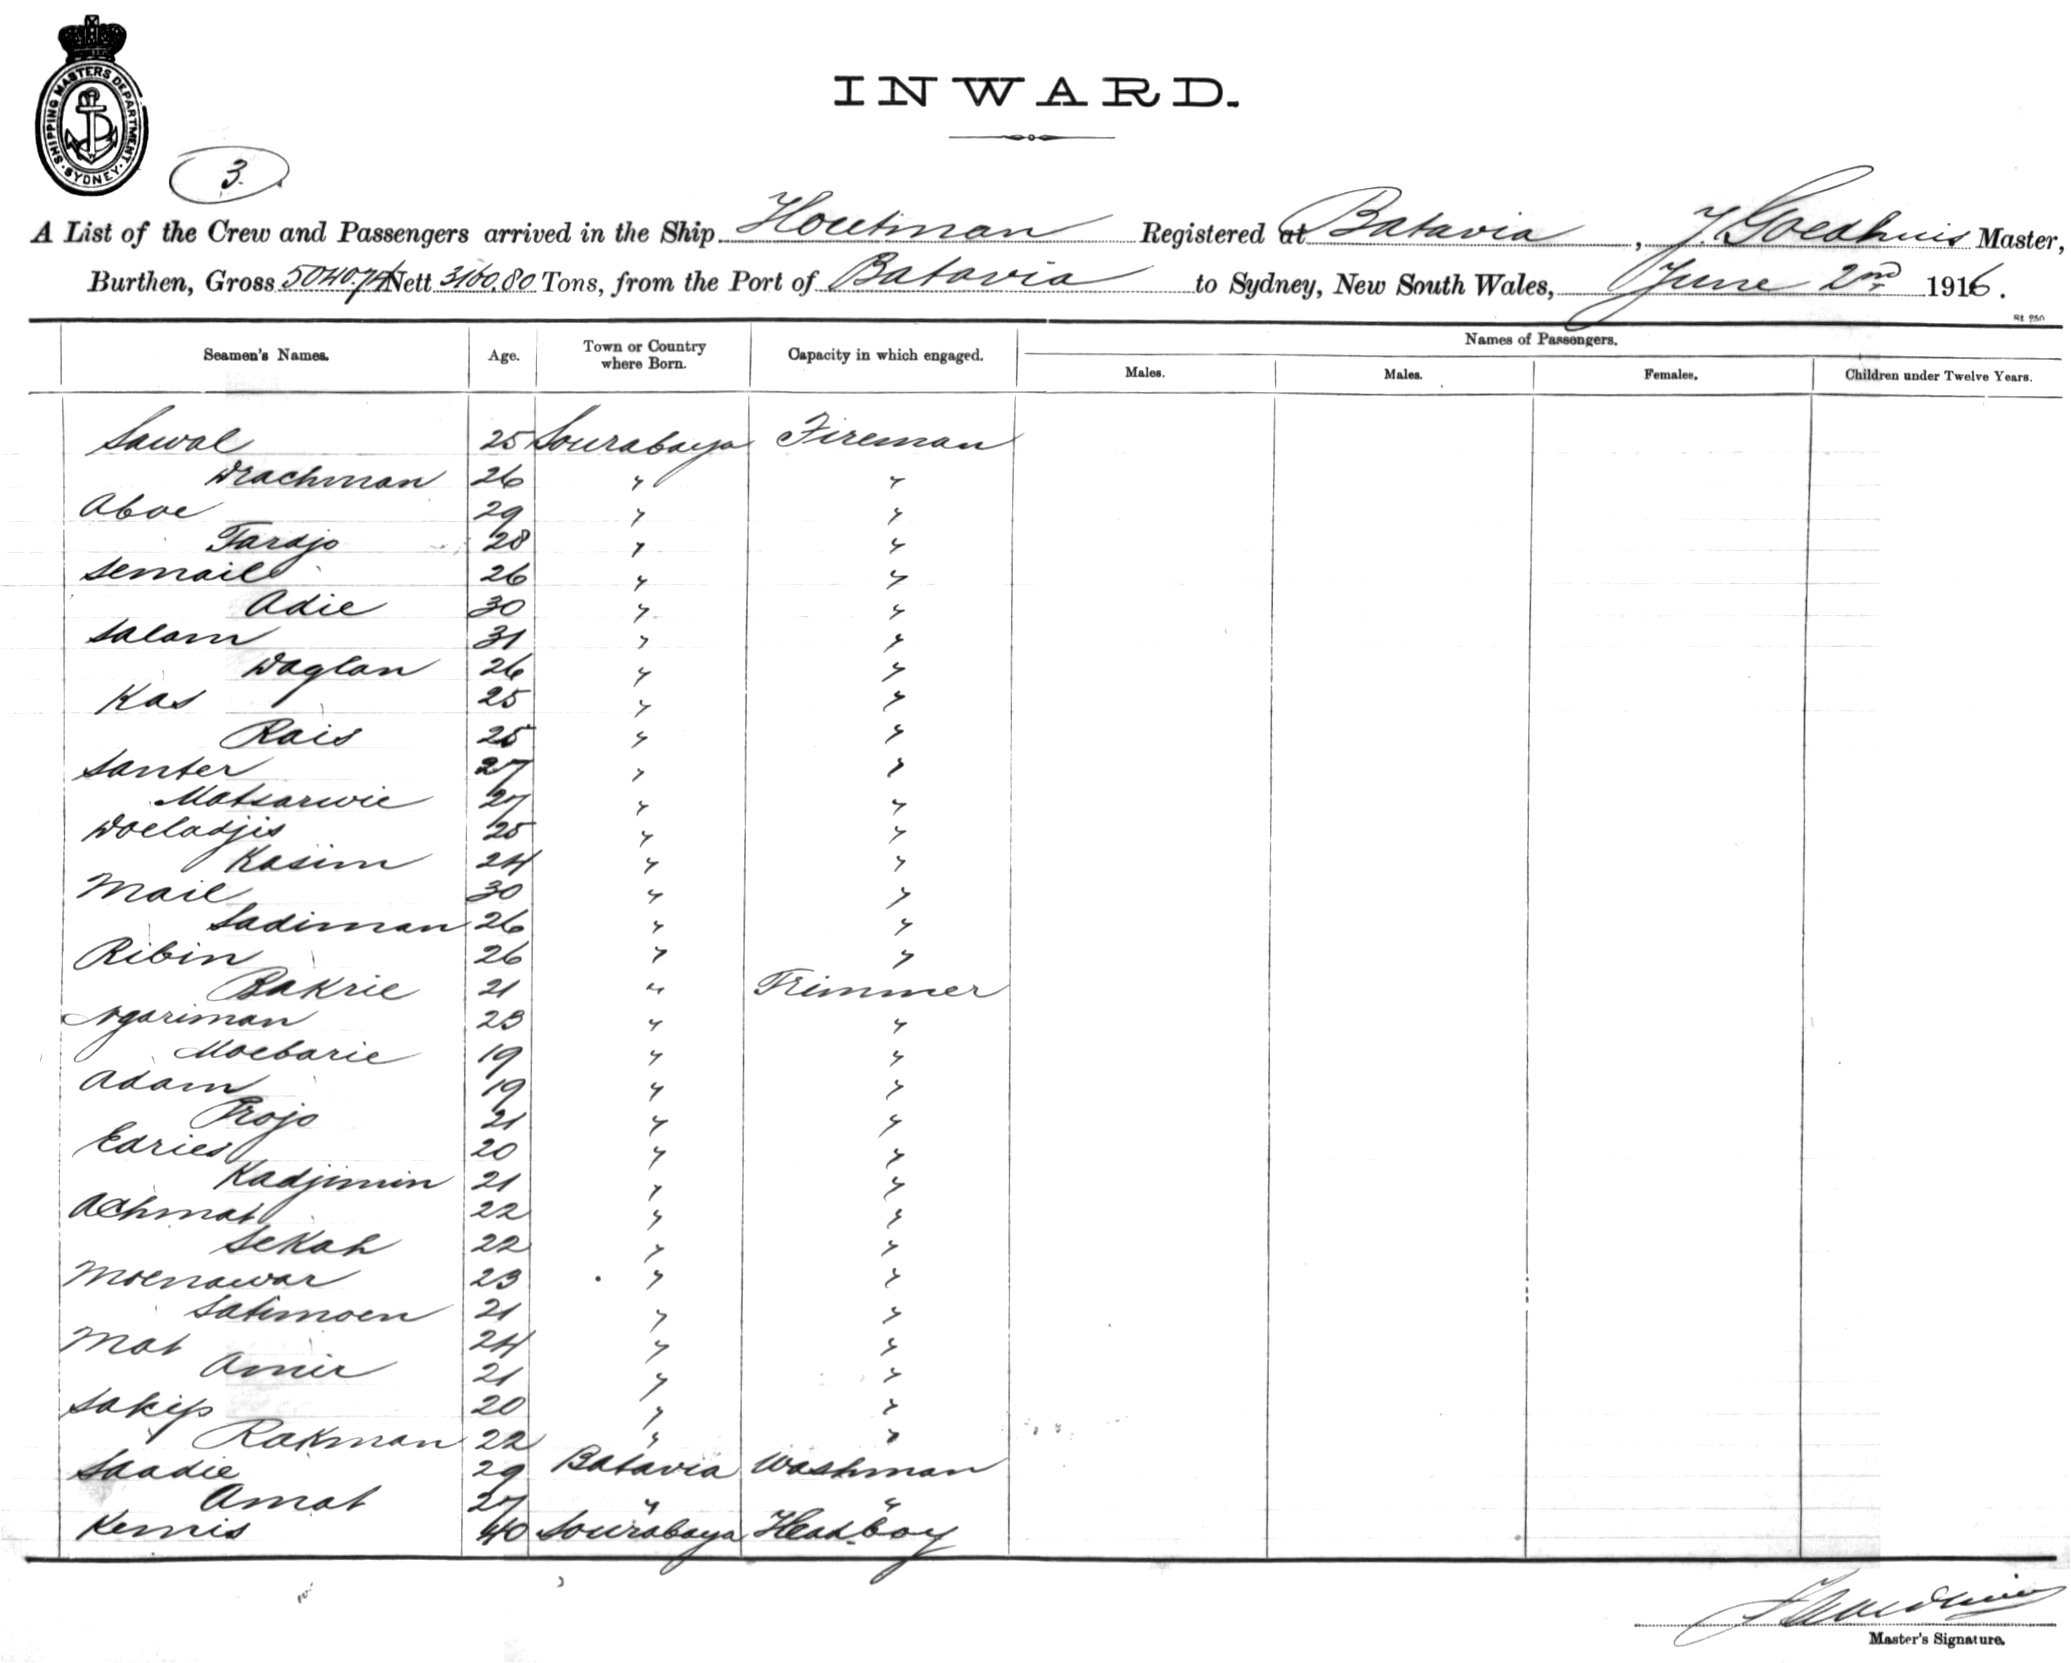 INWARD.
SHIPPING MASTERS DEPARTMENT SYDNEY
3.
A List of the Crew and Passengers arrived in the Ship Houtman Registered at Batavia, J. Goedhuis Master,
Burthen, Gross 5040.74 Nett 3160.80 Tons, from the Port of Batavia to Sydney, New South Wales, June 2nd 1916.
St 250
Seamen's Names. Age. Town or Country where Born. Capacity in which engaged. Names of Passengers.
Males. Males. Females. Children under Twelve Years.
Sawal 25 Sourabaya Fireman
Drachman 26 " "
Aboe 29 " "
Tardjo 28 " "
Semail 26 " "
Adie 30 " "
Salam 31 " "
Daglan 26 " "
Kas 25 " "
Rais 25 " "
Santer 27 " "
Matsarwie 27 " "
Doeladjis 25 " "
Kasim 24 " "
Mail 30 " "
Sadiman 26 " "
Ribin 26 " "
Bakrie 21 " Trimmer
Ngariman 23 " "
Moebarie 19 " "
Adam 19 " "
Trojo 21 " "
Edries 20 " "
Kadjimin 21 " "
Achmat 22 " "
Sekah 22 " "
Moenawar 23 " "
Satimoen 21 " "
Mat 24 " "
Amir 21 " "
Sakip 20 " "
Rakman 22 " "
Saadie 29 Batavia Washman
Amat 27 " "
Kemis 40 Sourabaya Head-boy
Master's Signature.